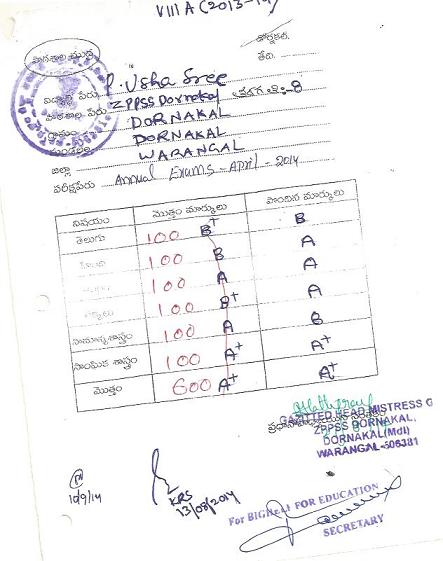 VIII A (2013-14)
డోర్నకల్.
పాఠశాల ముద్ర
తేది.
విద్యార్థి పేరు P. Usha Sree
పాఠశాల పేరు ZPPSS Dornakal తరగతి :- 8
గ్రామం DORNAKAL
మండలం DORNAKAL
జిల్లా WARANGAL
పరీక్షపేరు Annual Exams - April - 2014
విషయం మొత్తం మార్కులు పొందిన మార్కులు
తెలుగు 100 B+ B
100 B A
100 A A
100 B+ A
సామాన్యశాస్త్రం 100 A B
సాంఘిక శాస్త్రం 100 A+ A+
మొత్తం 600 A+ A+
GAZITTED HEAD MISTRESS G
ZPPSS DORNAKAL,
DORNAKAL(Mdl)
WARANGAL-506381
10/9/14
KRS
13/08/2014
For BIGHELP FOR EDUCATION
SECRETARY